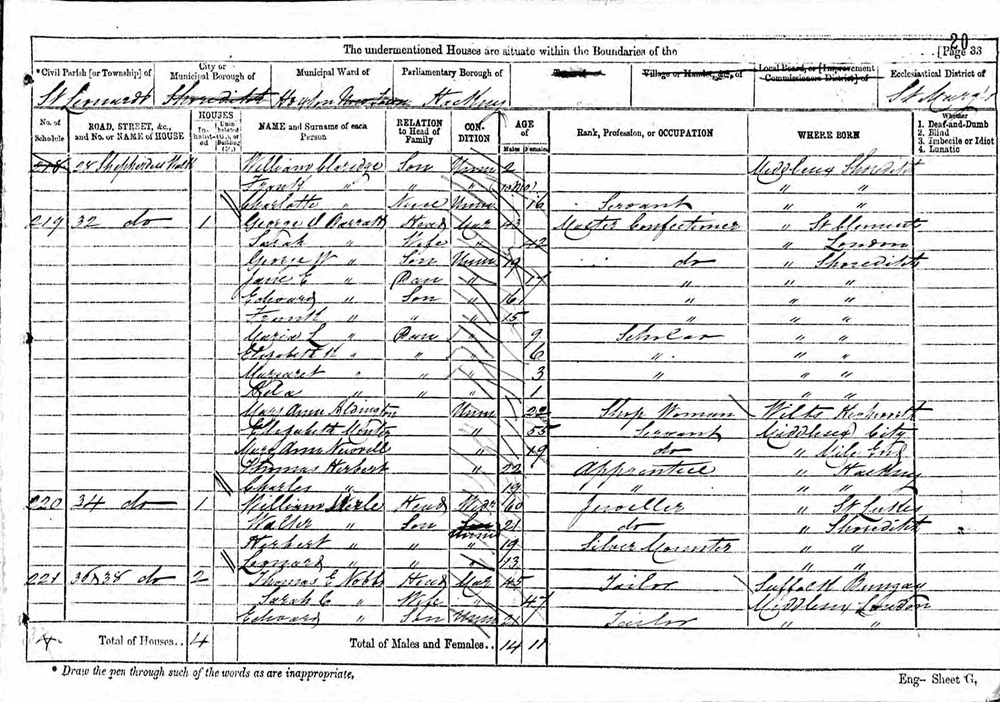 20
The undermentioned Houses are situate within the Boundaries of the [Page 33
*Civil Parish [or Township] of City or Municipal Borough of Municipal Ward of Parliamentary Borough of Town of Village or Hamlet, &c., of Local Board, or [Improvement Commissioners District] of Ecclesiastical District of
St Leonards Shoreditch Hoxton New Town Hackney St Mary's
No. of Schedule ROAD, STREET, &c., and No. or NAME of HOUSE HOUSES Inhabited Uninhabited (U.), or Building (B.) NAME and Surname of each Person RELATION to Head of Family CONDITION AGE of Males Females Rank, Profession, or OCCUPATION WHERE BORN Whether 1. Deaf-and-Dumb 2. Blind 3. Imbecile or Idiot 4. Lunatic
218 28 Shepherdess Walk William Son Unm 2 Middlesex Shoreditch
Frank " " " "
Charlotte " Niece Unm 16 Servant " "
219 32 do 1 George O Barratt Head Mar 43 Master Confectioner " St Clements
Sarah " Wife " 42 " London
George W " Son Unm 19 do " Shoreditch
Jane E " Daur " 17 " " "
Edward " Son " 16 " " "
Frank " " " 15 " " "
Maria L " Daur " 9 Scholar " "
Elizabeth " " " 6 " " "
Margaret " " " 3 " " "
" " " 1 " "
Mary Ann Aldington Unm 22 Shop Woman Wilts
Elizabeth " 55 Servant Middlesex City
Mary Ann " 19 do " Mile End
Thomas Herbert " 22 Apprentice " Hackney
Charles " " 19 " " "
220 34 do 1 William Head Widr 60 Jeweller " St Lukes
Walter " Son Unm 21 do " Shoreditch "
Herbert " " " 19 Silver Mounter " "
Leonard " " " 13 " "
221 36 & 38 do 2 Thomas E Nobbs Head Mar 45 Tailor Suffolk Bungay
Sarah C " Wife " 47 Middlesex London
Edward " Son Unm 21 Tailor " "
4 Total of Houses.. 4 Total of Males and Females.. 14 11
* Draw the pen through such of the words as are inappropriate,
Eng-- Sheet G,